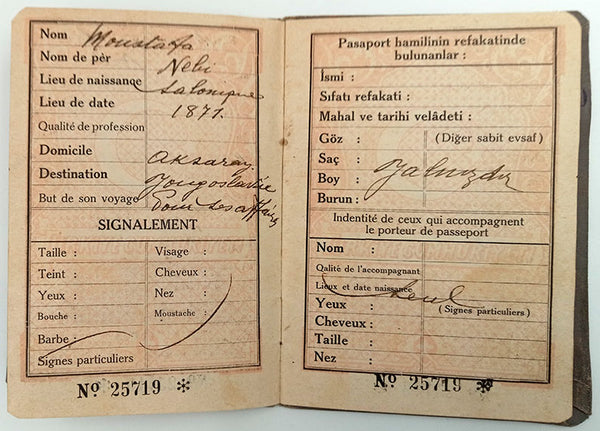 Nom Moustafa
Nom de pèr Nebi
Lieu de naissance Salonique
Lieu de date 1871.
Qualité de profession
Domicile Aksaray
Destination Yougoslavie
But de son voyage Pour ses affaires
SIGNALEMENT
Taille :
Teint :
Yeux :
Bouche :
Barbe :
Signes particuliers
Visage :
Cheveux :
Nez :
Moustache :
No 25719 *
Pasaport hamilinin refakatinde
bulunanlar :
İsmi :
Sıfatı refakati :
Mahal ve tarihi velâdeti :
Göz : (Diğer sabit evsaf)
Saç :
Boy : Yalnızdır
Burun :
Indentité de ceux qui accompagnent
le porteur de passeport
Nom :
Qalité de l'accompagnant
Lieux et date naissance
Seul
Yeux : (Signes particuliers)
Cheveux :
Taille :
Nez :
No 25719 *